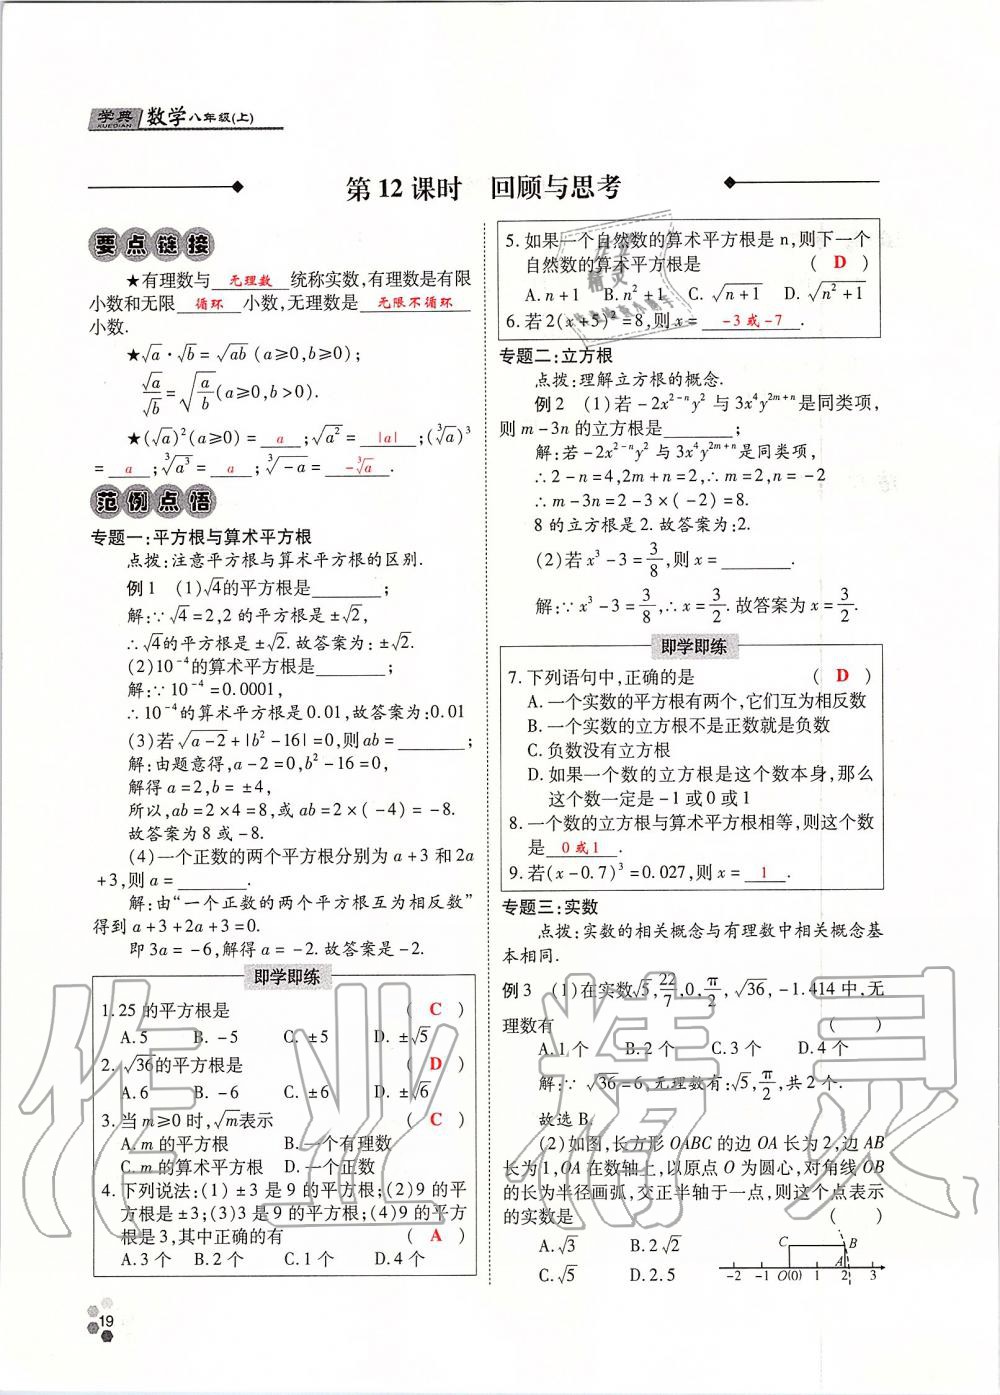 学典 数学八年级(上)
XUEDIAN
第12课时 回顾与思考
要点链接
★有理数与 无理数 统称实数,有理数是有限
小数和无限 循环 小数,无理数是 无限不循环
小数.
★√a·√b=√ab (a≥0,b≥0).
√a/√b=√(a/b)(a≥0,b>0).
★(√a)²(a≥0)= a ;√a²= |a| ;(∛a)³
= a ;∛a³= a ;∛-a= -∛a .
范例点悟
专题一:平方根与算术平方根
点拨:注意平方根与算术平方根的区别.
例1 (1)√4的平方根是________;
解:∵√4=2,2的平方根是±√2,
∴√4的平方根是±√2.故答案为:±√2.
(2)10⁻⁴的算术平方根是________;
解:∵10⁻⁴=0.0001,
∴10⁻⁴的算术平方根是0.01,故答案为:0.01
(3)若√a-2+|b²-16|=0,则ab=________;
解:由题意得,a-2=0,b²-16=0,
解得a=2,b=±4,
所以,ab=2×4=8,或ab=2×(-4)=-8.
故答案为8或-8.
(4)一个正数的两个平方根分别为a+3和2a
+3,则a=________.
解:由“一个正数的两个平方根互为相反数”
得到a+3+2a+3=0.
即3a=-6,解得a=-2.故答案是-2.
即学即练
1.25的平方根是 ( C )
A.5 B.-5 C.±5 D.±√5
2.√36的平方根是 ( D )
A.6 B.-6 C.±6 D.±√6
3.当m≥0时,√m表示 ( C )
A.m的平方根 B.一个有理数
C.m的算术平方根 D.一个正数
4.下列说法:(1)±3是9的平方根;(2)9的平
方根是±3;(3)3是9的平方根;(4)9的平方
根是3,其中正确的有 ( A )
A.3个 B.2个 C.1个 D.4个
19
5.如果一个自然数的算术平方根是n,则下一个
自然数的算术平方根是 ( D )
A.n+1 B.n²+1 C.√n+1 D.√n²+1
6.若2(x+5)²=8,则x= -3或-7 .
专题二:立方根
点拨:理解立方根的概念.
例2 (1)若-2x²⁻ⁿy²与3x⁴y²ᵐ⁺ⁿ是同类项,
则m-3n的立方根是________;
解:若-2x²⁻ⁿy²与3x⁴y²ᵐ⁺ⁿ是同类项,
∴2-n=4,2m+n=2,∴m=2,n=-2
∴m-3n=2-3×(-2)=8.
8的立方根是2.故答案为:2.
(2)若x³-3=3/8,则x=________.
解:∵x³-3=3/8,∴x=3/2.故答案为x=3/2.
即学即练
7.下列语句中,正确的是 ( D )
A.一个实数的平方根有两个,它们互为相反数
B.一个实数的立方根不是正数就是负数
C.负数没有立方根
D.如果一个数的立方根是这个数本身,那么
这个数一定是-1或0或1
8.一个数的立方根与算术平方根相等,则这个数
是 0或1 .
9.若(x-0.7)³=0.027,则x= 1 .
专题三:实数
点拨:实数的相关概念与有理数中相关概念基
本相同.
例3 (1)在实数√5,22/7,0,π/2,√36,-1.414中,无
理数有 ( )
A.1个 B.2个 C.3个 D.4个
解:∵√36=6,无理数有:√5,π/2,共2个.
故选B.
(2)如图,长方形OABC的边OA长为2,边AB
长为1,OA在数轴上,以原点O为圆心,对角线OB
的长为半径画弧,交正半轴于一点,则这个点表示
的实数是 ( )
A.√3 B.2√2
C.√5 D.2.5
C B
A
-2 -1 O(0) 1 2 3
作业精灵